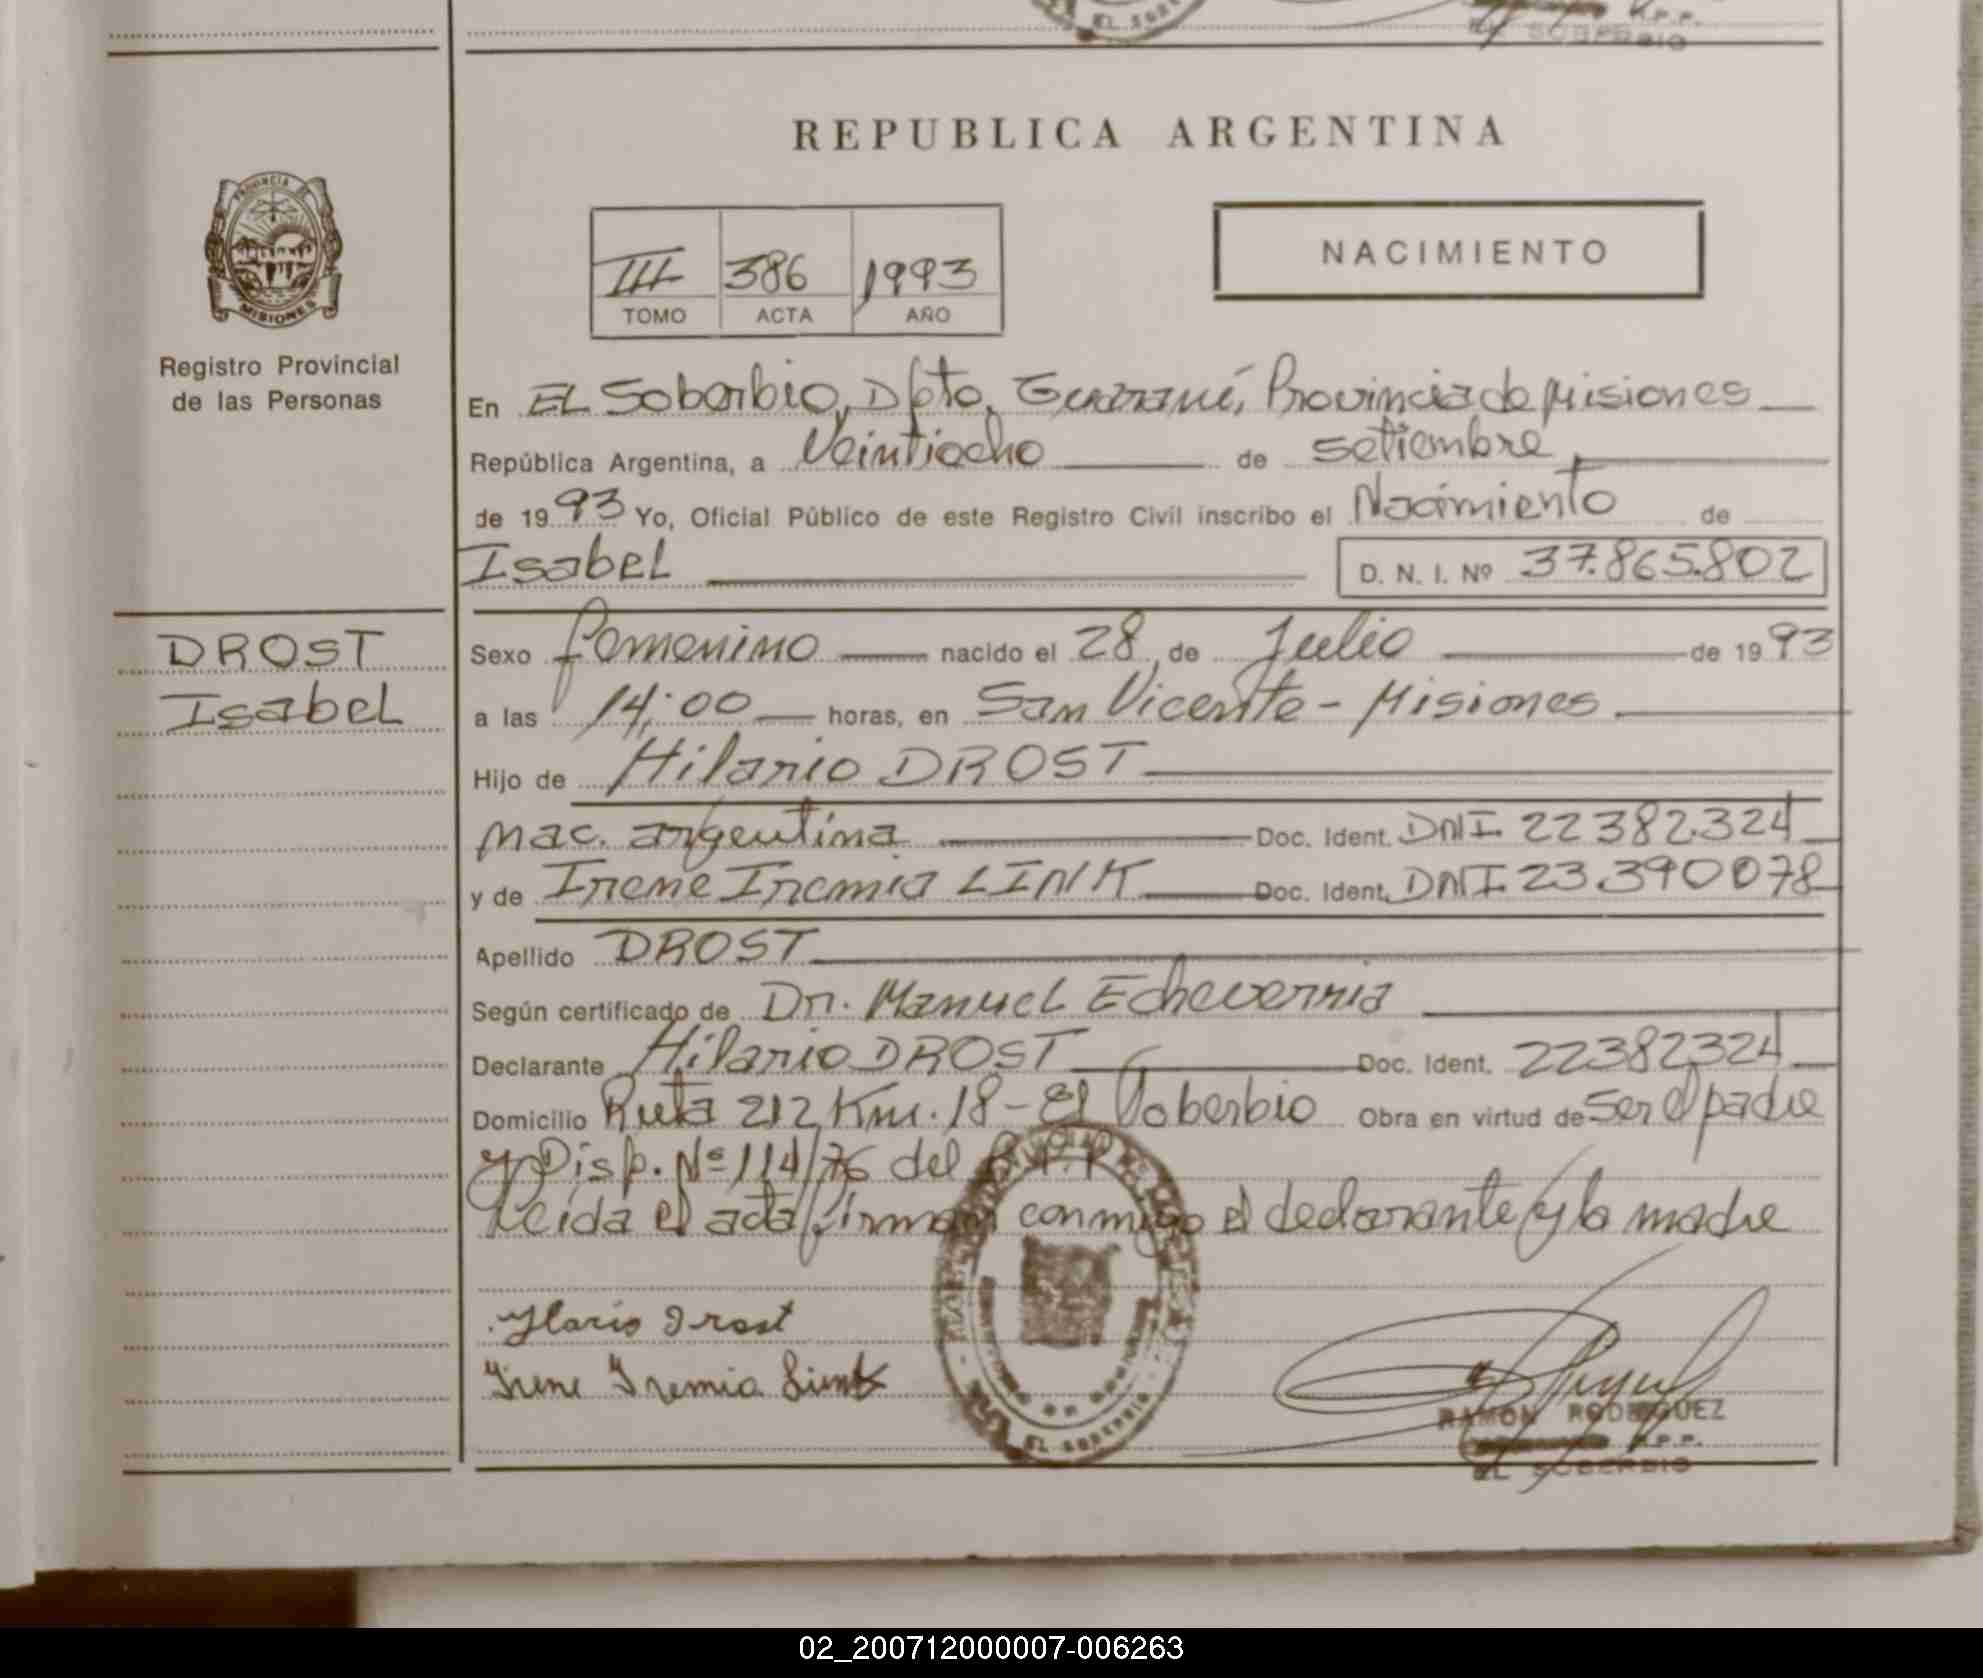 EL SOBERBIO
R.P.P.
EL SOBERBIO
REPUBLICA ARGENTINA
PROVINCIA DE
MISIONES
Registro Provincial
de las Personas
III 386 1993
TOMO ACTA AÑO
NACIMIENTO
En EL Soberbio, Dpto. Guaraní, Provincia de Misiones
República Argentina, a Veintiocho de setiembre
de 1993 Yo, Oficial Público de este Registro Civil inscribo el Nacimiento de
Isabel D. N. I. Nº 37.865.802
DROST
Isabel
Sexo femenino nacido el 28 de Julio de 1993
a las 14:00 horas, en San Vicente - Misiones
Hijo de Hilario DROST
nac. argentina Doc. Ident. DNI 22382324
y de Irene Iremia LINK Doc. Ident. DNI 23.390078
Apellido DROST
Según certificado de Dr. Manuel Echeverria
Declarante Hilario DROST Doc. Ident. 22382324
Domicilio Ruta 212 Km. 18 - El Soberbio Obra en virtud de Ser el padre
y Disp. Nº 114/76 del R.P.P
Leida el acta firman conmigo el declarante y la madre
Ylario Drost
Irene Iremia Link
EL SOBERBIO
RAMON RODRIGUEZ
R.P.P.
EL SOBERBIO
02_200712000007-006263